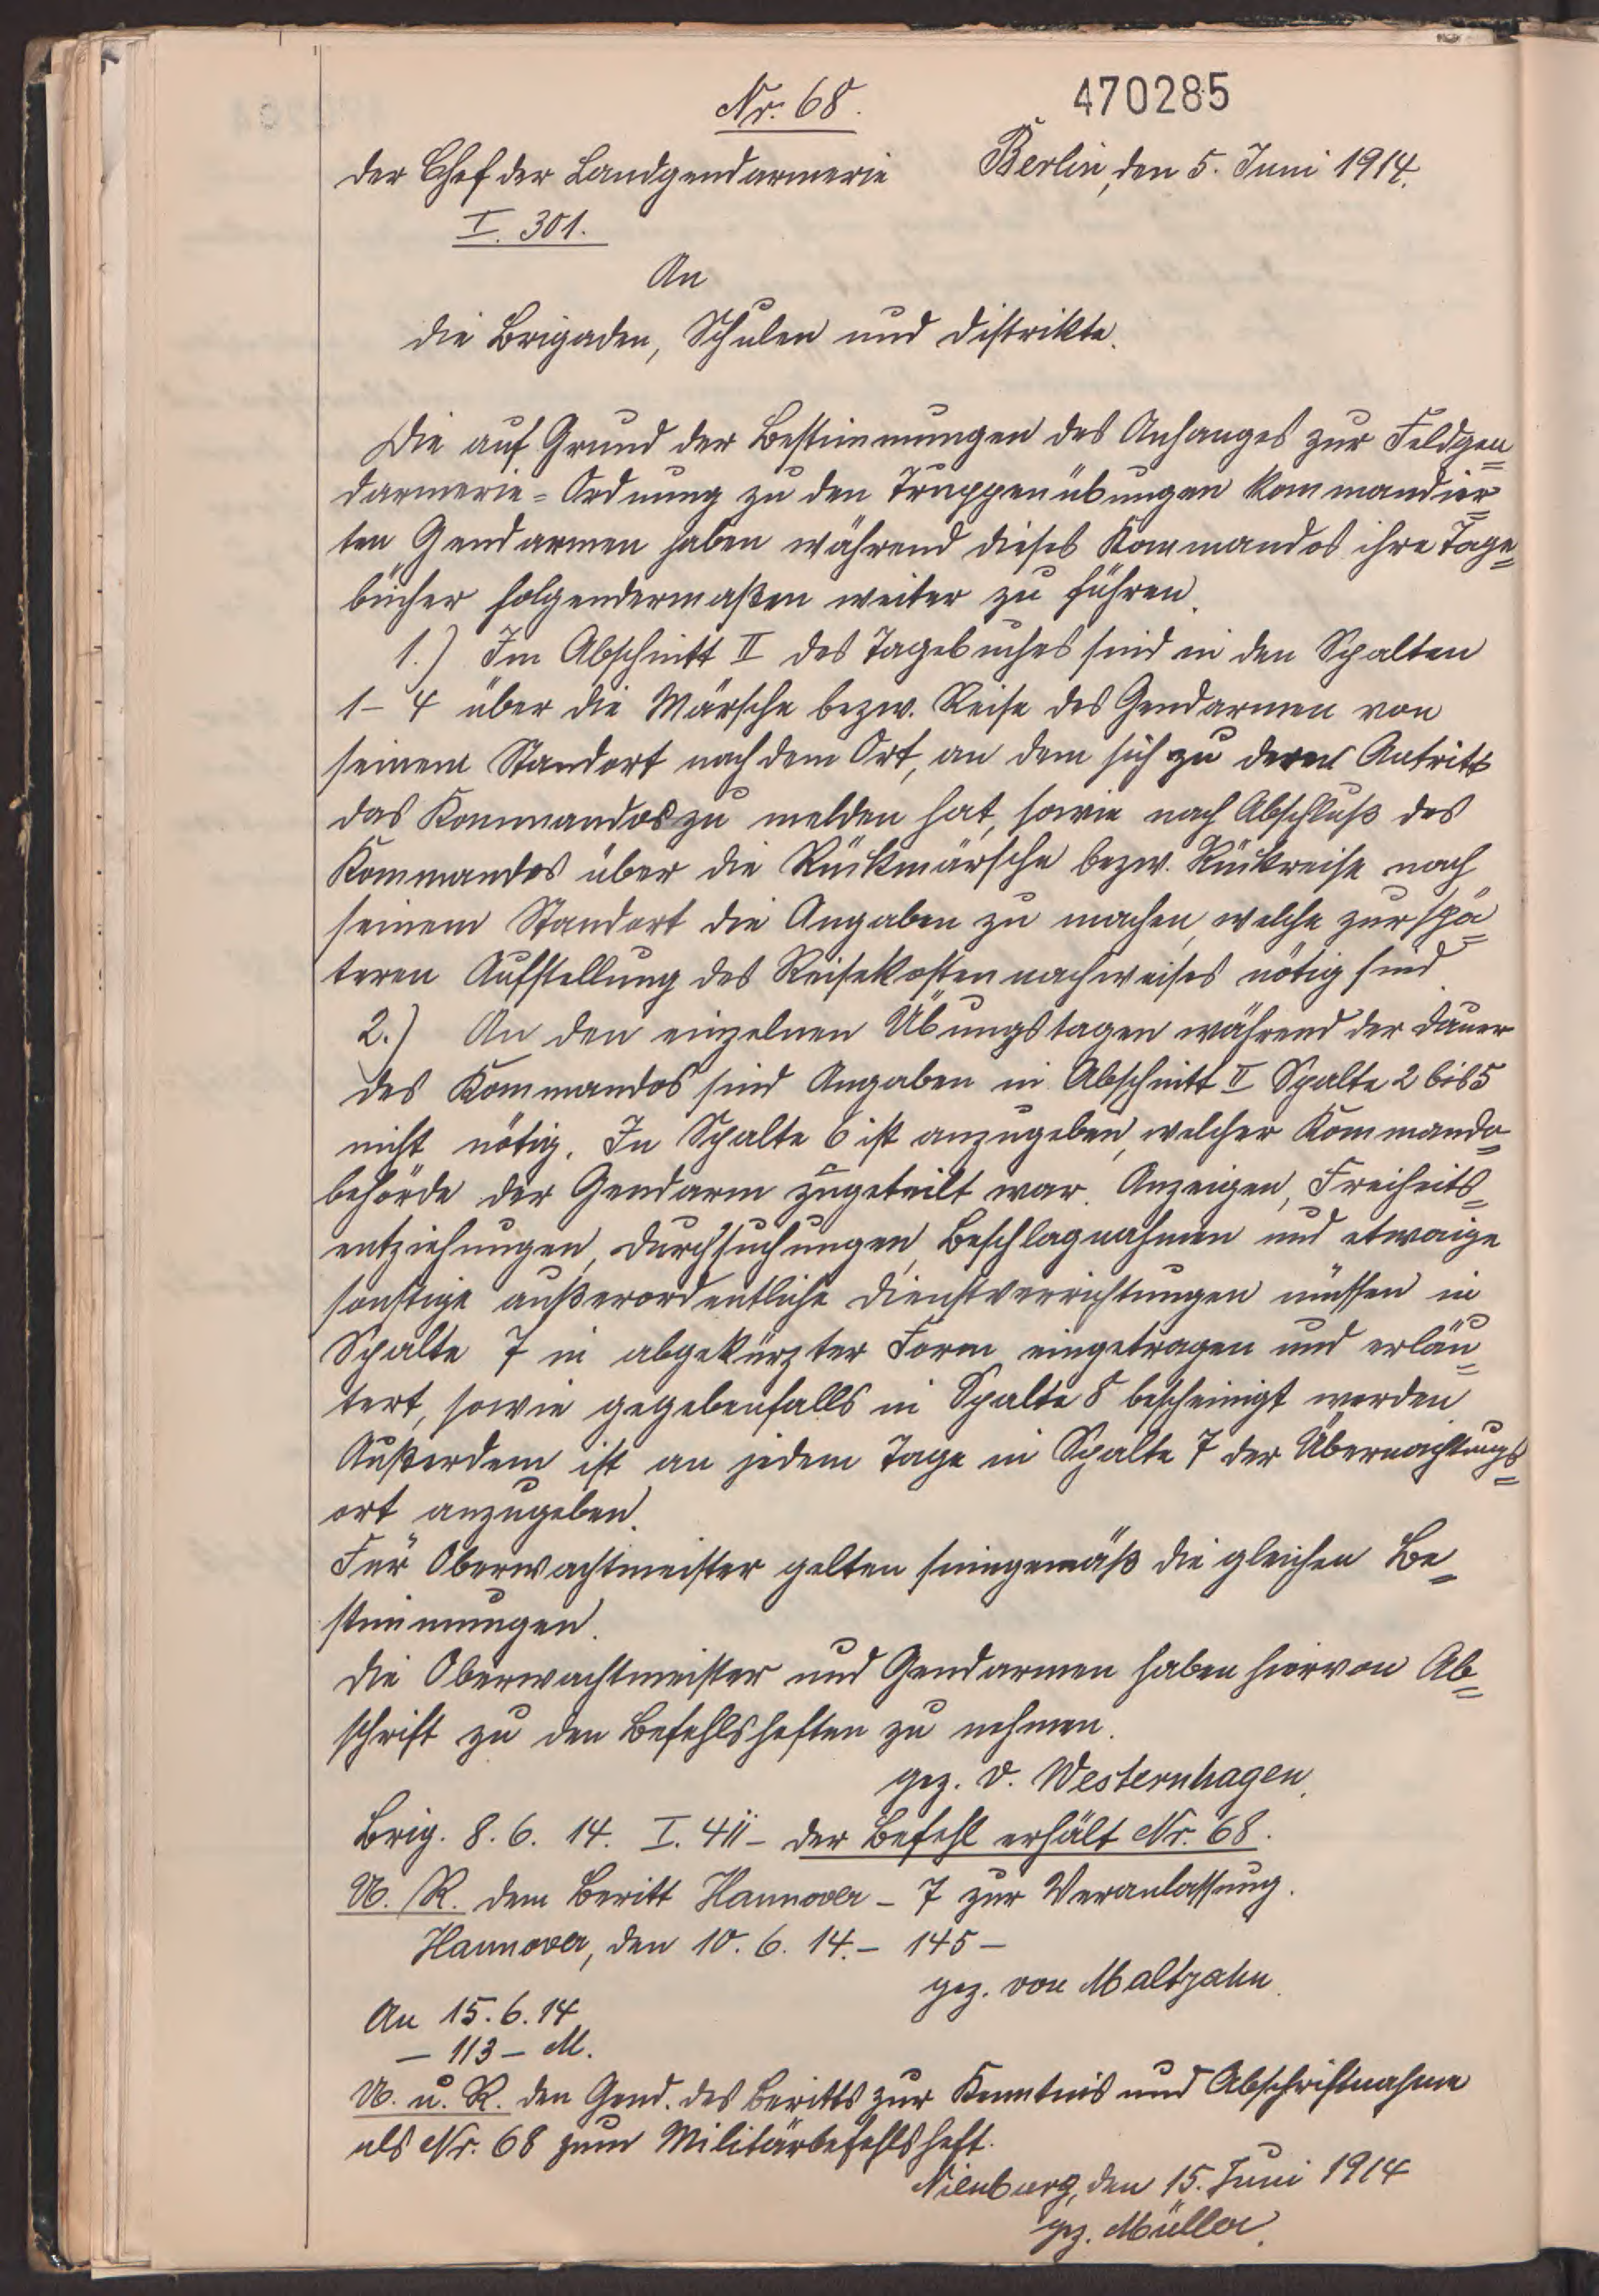 Nr. 68.
470285
Der Chef der Landgendarmerie
Berlin, den 5. Juni 1914.
I. 301.
An
die Brigaden, Schulen und Distrikte.
Die auf Grund der Bestimmungen des Anhanges zur Feldgen=
darmerie=Ordnung zu den Truppenübungen kommandier=
ten Gendarmen haben während dieses Kommandos ihre Tage=
bücher folgendermaßen weiter zu führen.
1.) Im Abschnitt II des Tagebuches sind in den Spalten
1–4 über die Märsche bezw. Reise des Gendarmen von
seinem Standort nach dem Ort, an dem sich zu deren Antritt
das Kommandos zu melden hat, sowie nach Abschluß des
Kommandos über die Rückmärsche bezw. Rückreise nach
seinem Standort die Angaben zu machen, welche zur spä=
teren Aufstellung des Reisekostennachweises nötig sind.
2.) An den einzelnen Übungstagen während der Dauer
des Kommandos sind Angaben in Abschnitt II Spalte 2 bis 5
nicht nötig. In Spalte 6 ist anzugeben, welcher Kommando=
behörde der Gendarm zugeteilt war. Anzeigen, Freiheits=
entziehungen, Durchsuchungen, Beschlagnahmen und etwaige
sonstige außerordentliche Dienstverrichtungen müssen in
Spalte 7 in abgekürzter Form eingetragen und erläu=
tert, sowie gegebenfalls in Spalte 8 bescheinigt werden.
Außerdem ist an jedem Tage in Spalte 7 der Übernachtungs=
ort anzugeben.
Für Oberwachtmeister gelten sinngemäß die gleichen Be=
stimmungen.
Die Oberwachtmeister und Gendarmen haben hiervon Ab=
schrift zu den Befehlsheften zu nehmen.
gez. v. Westernhagen.
Brig. 8. 6. 14. I. 411 – Der Befehl erhält Nr. 68.
U. R. dem Beritt Hannover – 7 zur Veranlassung.
Hannover, den 10. 6. 14. – 145 –
gez. von Maltzahn.
An 15. 6. 14
– 113 – M.
U. u. R. den Gend. des Beritts zur Kenntnis und Abschriftnahme
als Nr. 68 zum Militärbefehlsheft.
Nienburg, den 15. Juni 1914
gez. Müller.